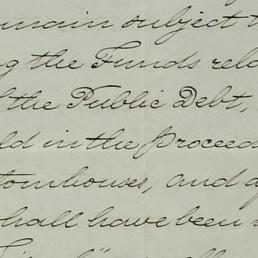 main subject t
g the Funds rela
the Public Debt,
ld in the proceed
tomhouses, and
hall have been